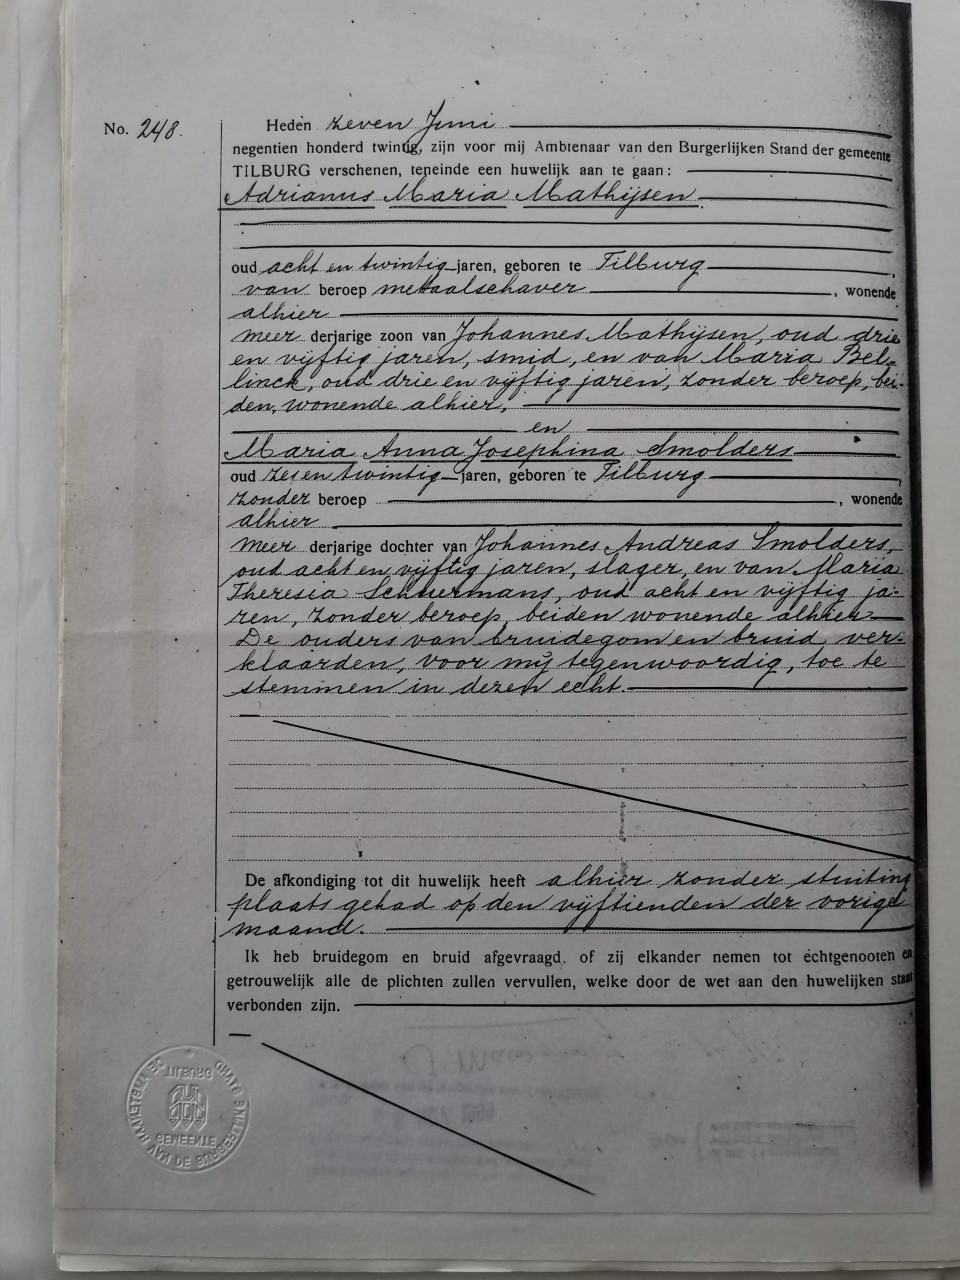 No. 248.
Heden zeven Juni
negentien honderd twintig, zijn voor mij Ambtenaar van den Burgerlijken Stand der gemeente
TILBURG verschenen, teneinde een huwelijk aan te gaan:
Adrianus Maria Mathijsen
oud acht en twintig jaren, geboren te Tilburg,
van beroep metaalschaver, wonende
alhier
meer derjarige zoon van Johannes Mathijsen, oud drie
en vijftig jaren, smid, en van Maria Bel-
linck, oud drie en vijftig jaren, zonder beroep, bei-
den, wonende alhier.
en
Maria Anna Josephina Smolders
oud zes en twintig jaren, geboren te Tilburg,
zonder beroep, wonende
alhier
meer derjarige dochter van Johannes Andreas Smolders,
oud acht en vijftig jaren, slager, en van Maria
Theresia Schuermans, oud acht en vijftig ja-
ren, zonder beroep, beiden wonende alhier
De ouders van bruidegom en bruid ver-
klaarden, voor mij tegenwoordig, toe te
stemmen in dezen echt.
De afkondiging tot dit huwelijk heeft alhier zonder stuiting
plaats gehad op den vijftienden der vorige
maand.
Ik heb bruidegom en bruid afgevraagd, of zij elkander nemen tot echtgenooten en
getrouwelijk alle de plichten zullen vervullen, welke door de wet aan den huwelijken staat
verbonden zijn.
TILBURG
GEMEENTE